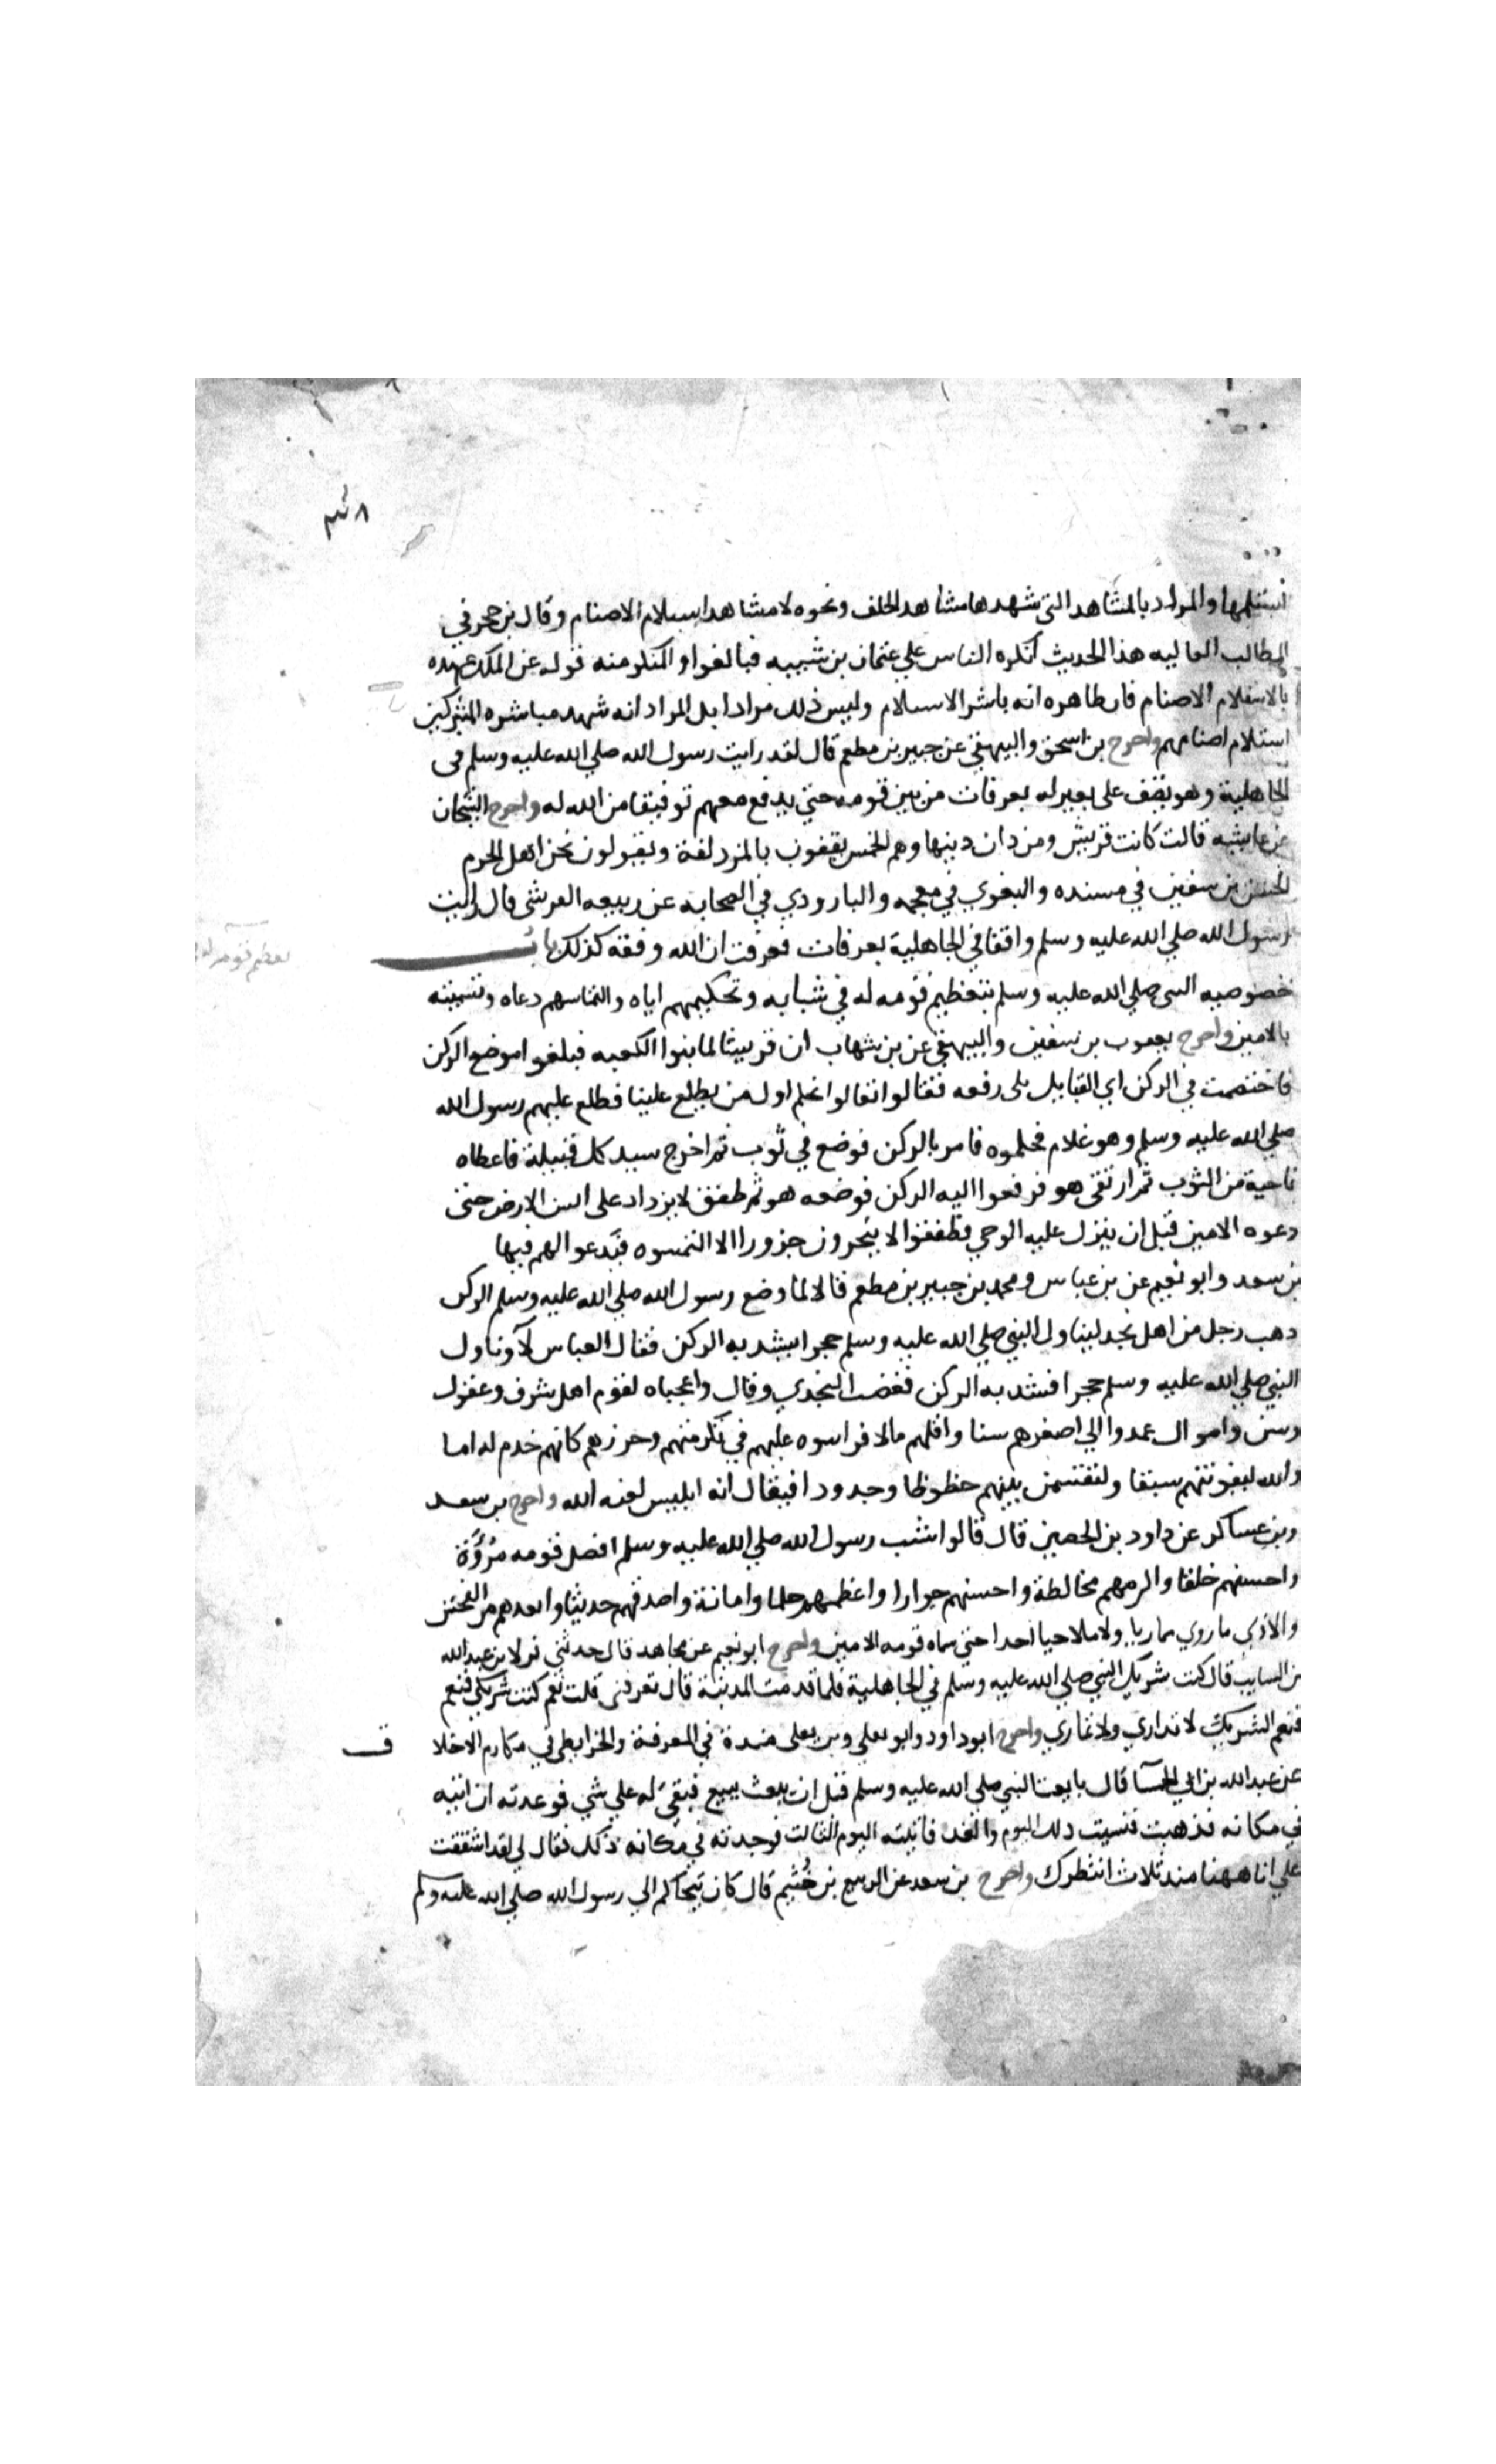 استلمها والمراد بالمشاهد التي شهدها مشاهد الحلف ونحوه لا مشاهد استلام الاصنام وقال بن حجر في
المطالب العاليه هذا الحديث انكره الناس علي عثمان بن شيبه فبالغوا والمنكر منه قوله عن الملك عهده
بالاستلام الاصنام فان ظاهره انه باشر الاستلام وليس ذلك مرادا بل المراد انه شهد مباشره المشركين
استلام اصنامهم واخرج بن اسحق والبيهقي عن جبير بن مطعم قال لقد رايت رسول الله صلي الله عليه وسلم في
الجاهلية وهو يقف على بعير له بعرفات من بين قومه حتي يدفع معهم توفيقا من الله له واخرج الشيخان
عن عايشه قالت كانت قريش ومن دان دينها وهم الحمس يقفون بالمزدلفة ويقولون نحن اهل الحرم
الحسن بن سفين في مسنده والبغوي في معجمه والبارودي في الصحابه عن ربيعه القرشي قال رايت
رسول الله صلي الله عليه وسلم واقفا في الجاهلية بعرفات فعرفت ان الله وفقه كذلك باب
خصوصيه النبي صلي الله عليه وسلم بتعظيم قومه له في شبابه وتحكيمهم اياه والتماسهم دعاه وتسميته
بالامين واخرج يعقوب بن سفين والبيهقي عن بن شهاب ان قريشا لما بنوا الكعبه فبلغوا موضع الركن
فاختصمت في الركن اي القبايل يلى رفعه فقالوا تعالوا نحكم اول من يطلع علينا فطلع عليهم رسول الله
صلي الله عليه وسلم وهو غلام فحكموه فامر بالركن فوضع في ثوب ثم اخرج سيد كل قبيلة فاعطاه
ناحية من الثوب ثم ارتقى هو فرفعوا اليه الركن فوضعه هو ثم طفق لا يزداد على السن الارضى حتى
دعوه الامين قبل ان ينزل عليه الوحي فطفقوا لا ينحرون جزورا الا التمسوه فيدعوا لهم فيها
بن سعد وابو نعيم عن بن عباس ومحمد بن جبير بن مطعم قالا لما وضع رسول الله صلي الله عليه وسلم الركن
دهب رجل من اهل نجد ليناول النبي صلي الله عليه وسلم حجرا ليشد به الركن فقال العباس لا وناول
النبي صلي الله عليه وسلم حجرا فشد به الركن فغضب النجدي وقال واعجباه لقوم اهل شرف وعقول
وسن واموال عمدوا الي اصغرهم سنا واقلهم مالا فراسوه عليهم في تكرمتهم وحرزهم كانهم خدم له اما
والله ليفوتنهم سبقا وليقتسمن بينهم حظوظا وجدودا فيقال انه ابليس لعنه الله واخرج بن سعد
وبن عساكر عن داود بن الحصين قال قالوا شب رسول الله صلي الله عليه وسلم افضل قومه مروة
واحسنهم خلقا واكرمهم مخالطة واحسنهم جوارا واعظمهم حلما وامانة واصدقهم حديثا وابعدهم من الفحش
والاذى ما روي مماريا ولا ملاحيا احدا حتى سماه قومه الامين واخرج ابو نعيم عن مجاهد قال حدثني مولا بن عبد الله
بن السايب قال كنت شريك النبي صلي الله عليه وسلم في الجاهلية فلما قدمت المدينة قال تعرفني قلت نعم كنت شريكي فنعم
فنعم الشريك لا تداري ولا تماري واخرج ابو داود وابو يعلي وبن منده في المعرفة والخرايطي في مكارم الاخلا
ق
عن عبد الله بن ابي الحمسا قال بايعت النبي صلي الله عليه وسلم قبل ان يبعث ببيع فبقى له علي شي فوعدته ان اتيه
في مكانه فذهبت فنسيت ذلك اليوم والغد فاتيته اليوم الثالث فوجدته في مكانه ذلك فقال لي لقد اشققت
علي انا ههنا منذ ثلاث انتظرك واخرج بن سعد عن الربيع بن خثيم قال كان يتحاكم الي رسول الله صلي الله عليه وسلم